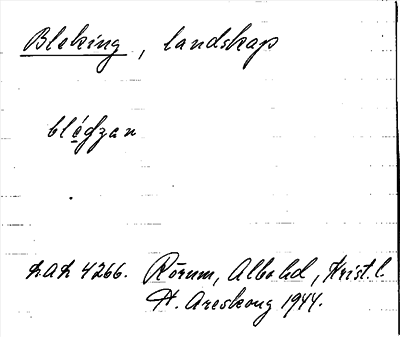 Bleking, landskap
blédzan
LAL 4266. Rörum, Albo hd, Krist. l.
H. Areskoug 1944.